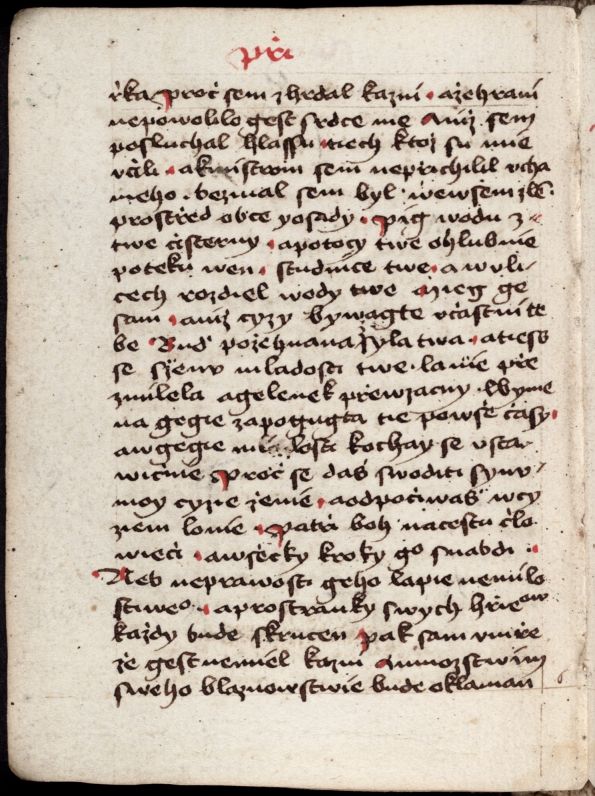 při
řka Proč sem zhrdal kazni · a zehrani
nepowolilo gest srdce me Aniz sem
posluchal hlassu · tiech ktoz su mie
včili · a k mistrom sem neprichilil vcha
meho · bezmal sem byl · we wsem zle ·
prostřed obce y osady · Pig wodu z
twe čisterny · a potocy twe ohlubnie
poteku wen · studnice twe · a w vli-
cech rozdiel wody twe Mieg ge
sam · aniz cyzy bywagte včastni te
be Bud pozehnana zyla twa · a tiess
se s ženu mladosti twe · lanie pře
zmilela a gelenek přewzacny · Wyme
na gegie zapogugta tie po wše časy ·
a w gegie milosti kochay se vsta-
wičnie Proč se daš swoditi synu
moy cyzie ženie · a odpočiwaš w cy
ziem lonie · Patři boh na cestu člo
wieči · a wšecky kroky go snabdi ·
Neb neprawosti geho lapie nemilo
stiweo · a prostranky swych hřiechow
každy bude skrucen Pak sam vmře
že gest nemiel kazni A mnozstwim
sweho blaznowstwie bude oklaman